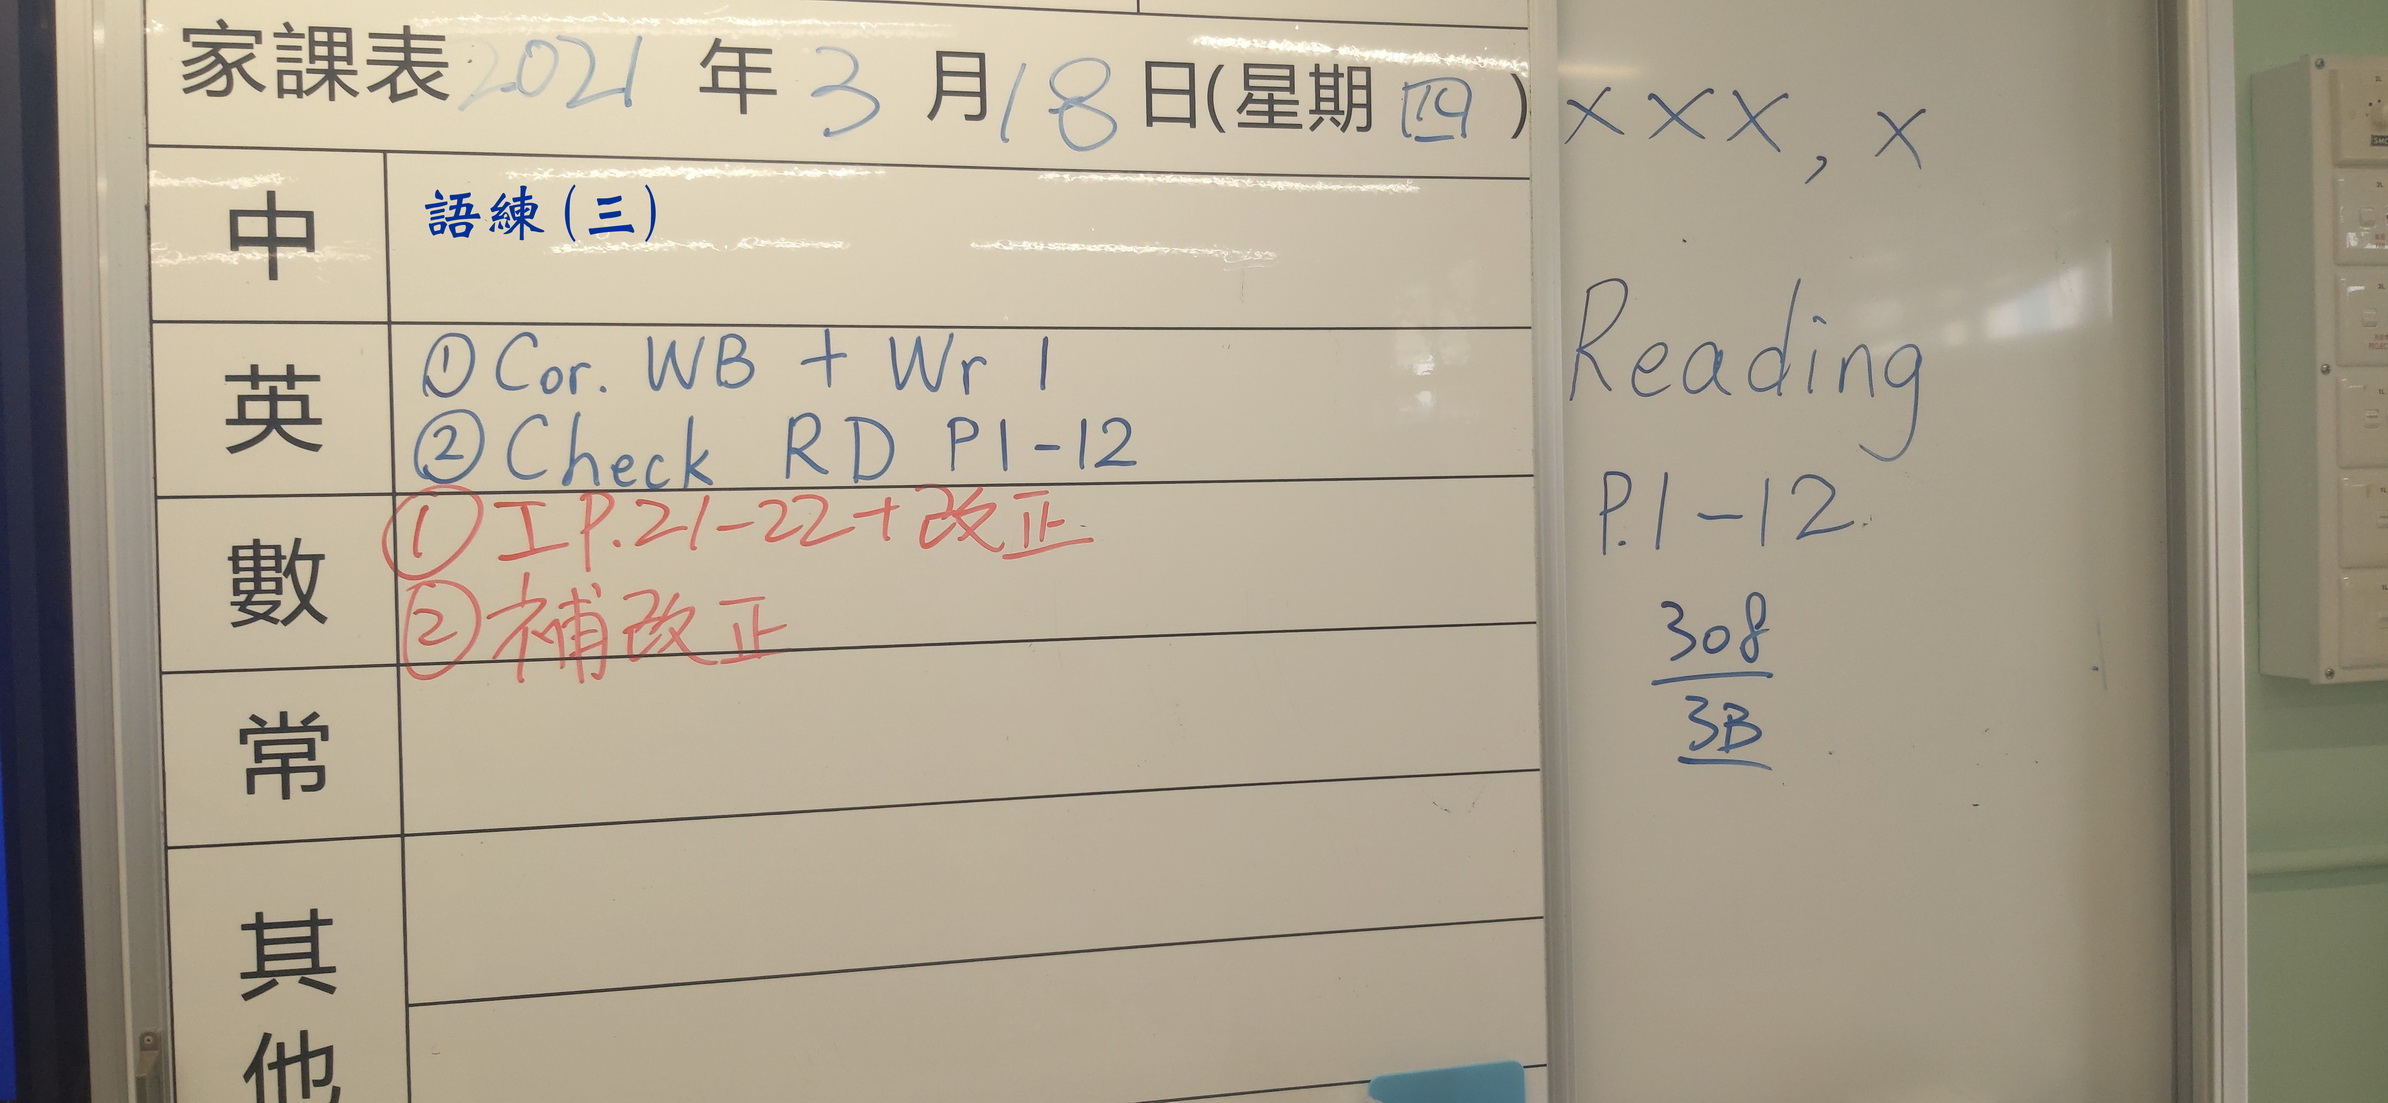 家課表 2021 年 3 月 18 日(星期 四)
中
語練(三)
英
① Cor. WB + Wr 1
② Check RD P1-12
數
① 工 P.21-22+改正
② 補改正
常
其他
×××, ×
Reading
P.1-12
308
3B